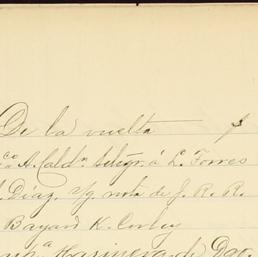 De la vuelta $
co. A. Cald.n telégr. á L. Torres
Díaz, s/g nota de J. R. R.
Bayard K. Conley
Harinera de